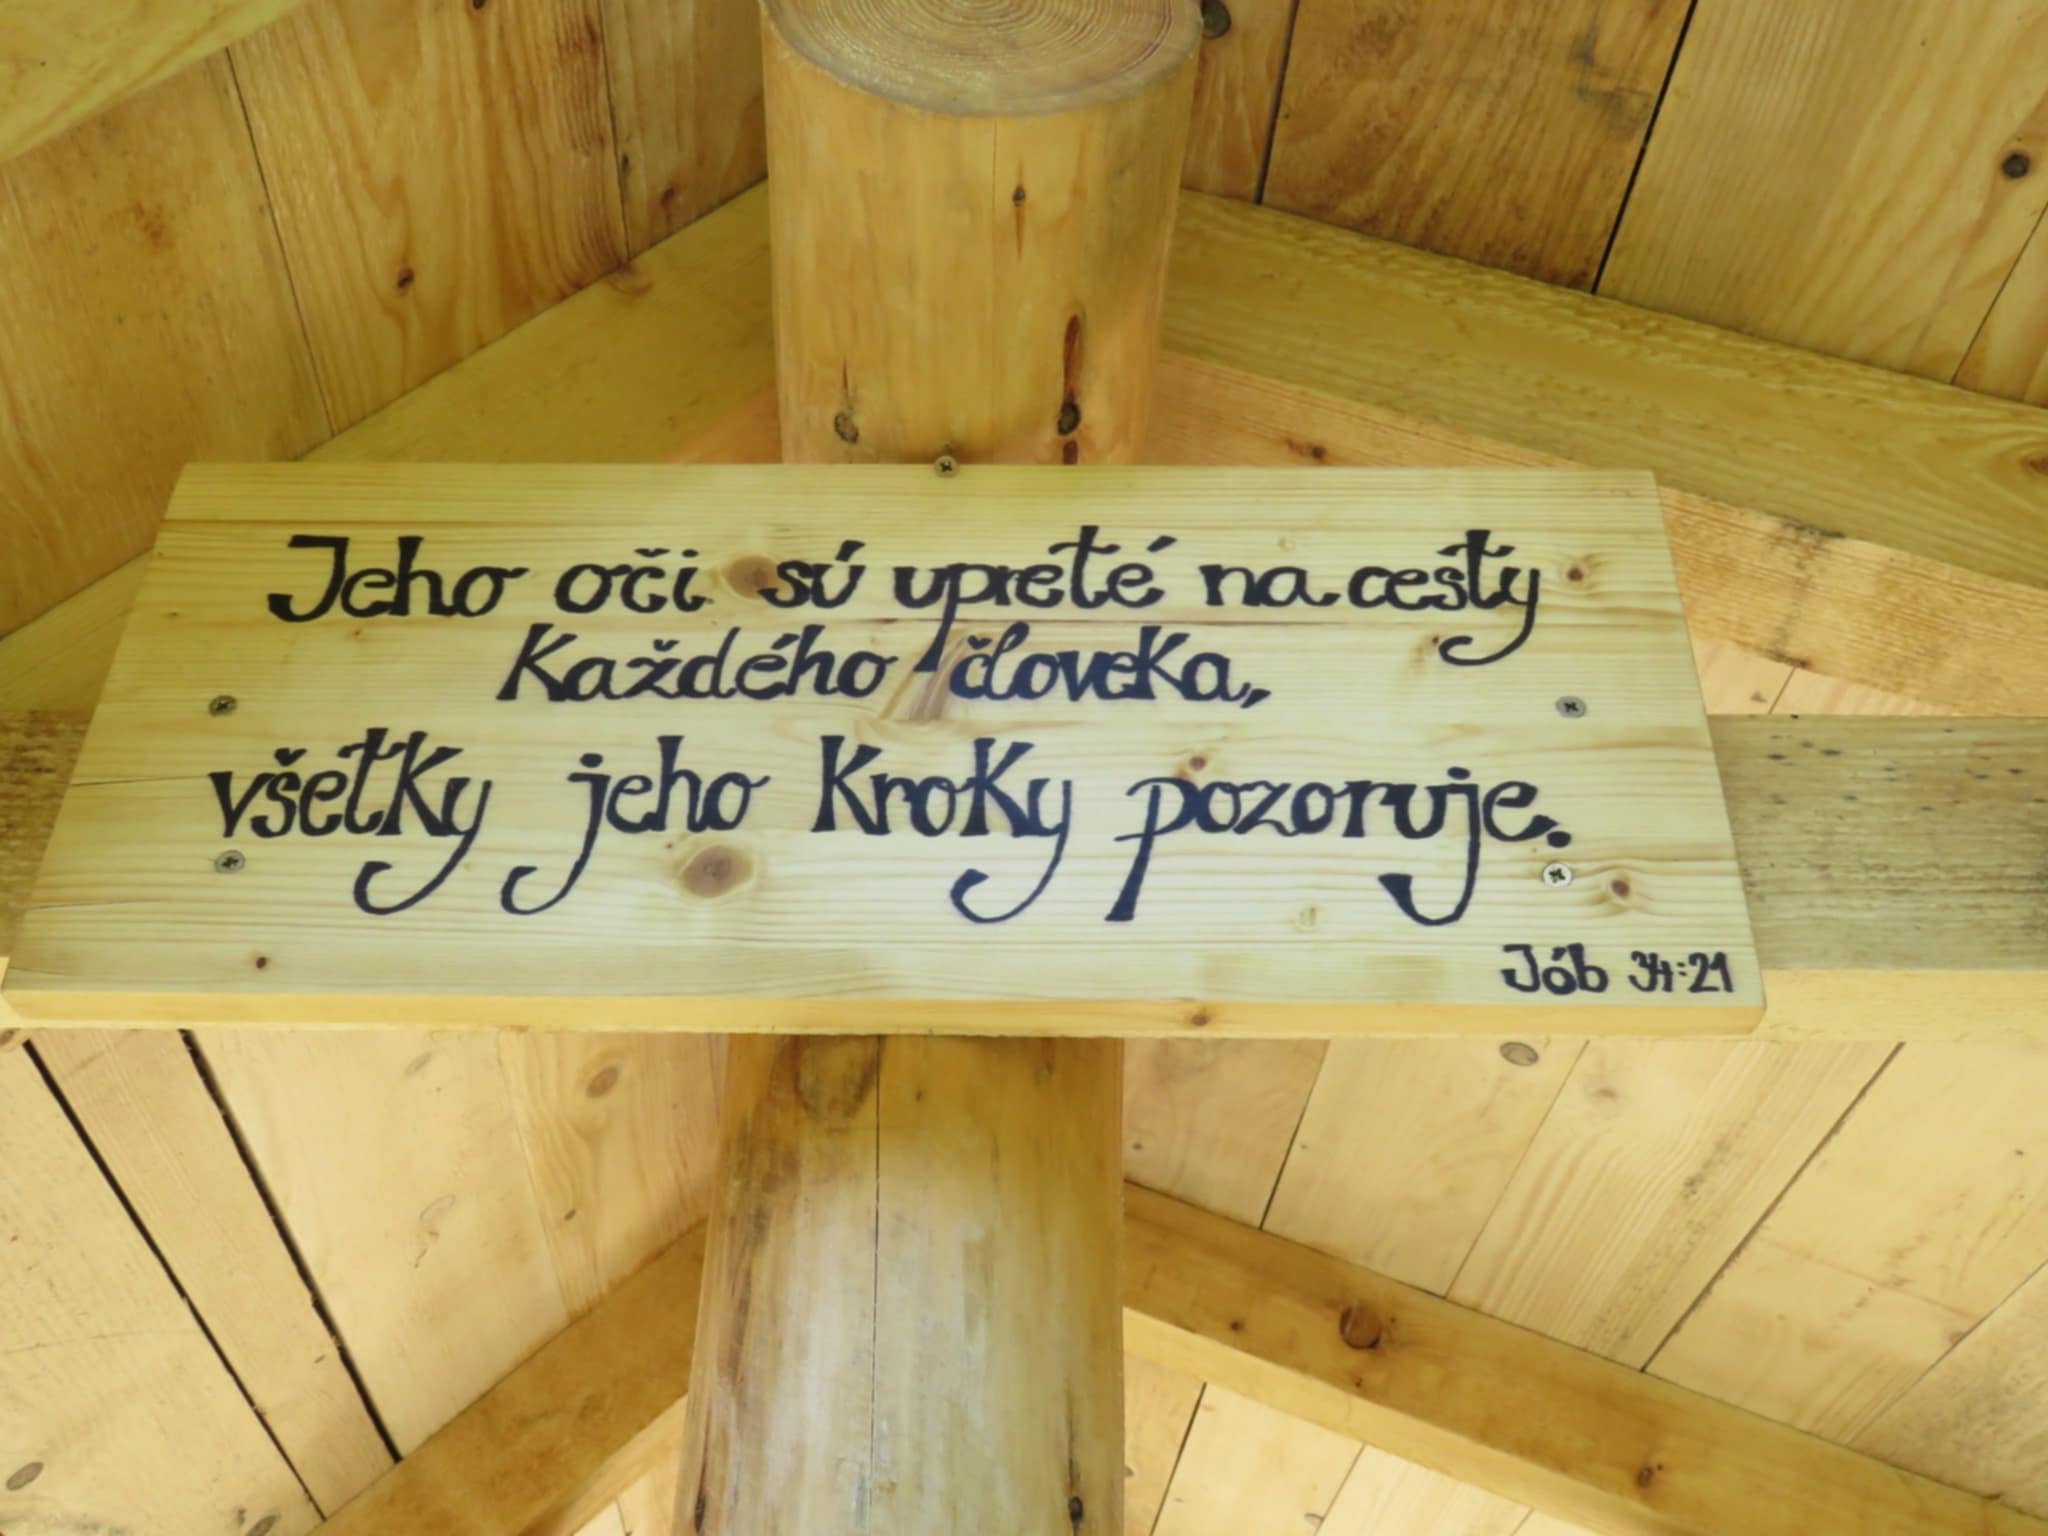 Jeho oči sú upreté na cesty
Každého človeka,
všetky jeho kroky pozoruje.
Jób 34:21